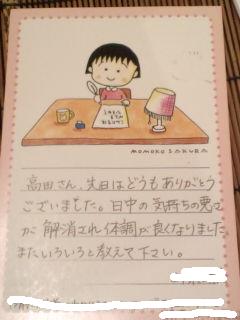 MOMOKO SAKURA
高田さん、先日はどうもありがとう
ございました。日中の気持ちの悪さ
が解消され体調が良くなりました。
またいろいろと教えて下さい。